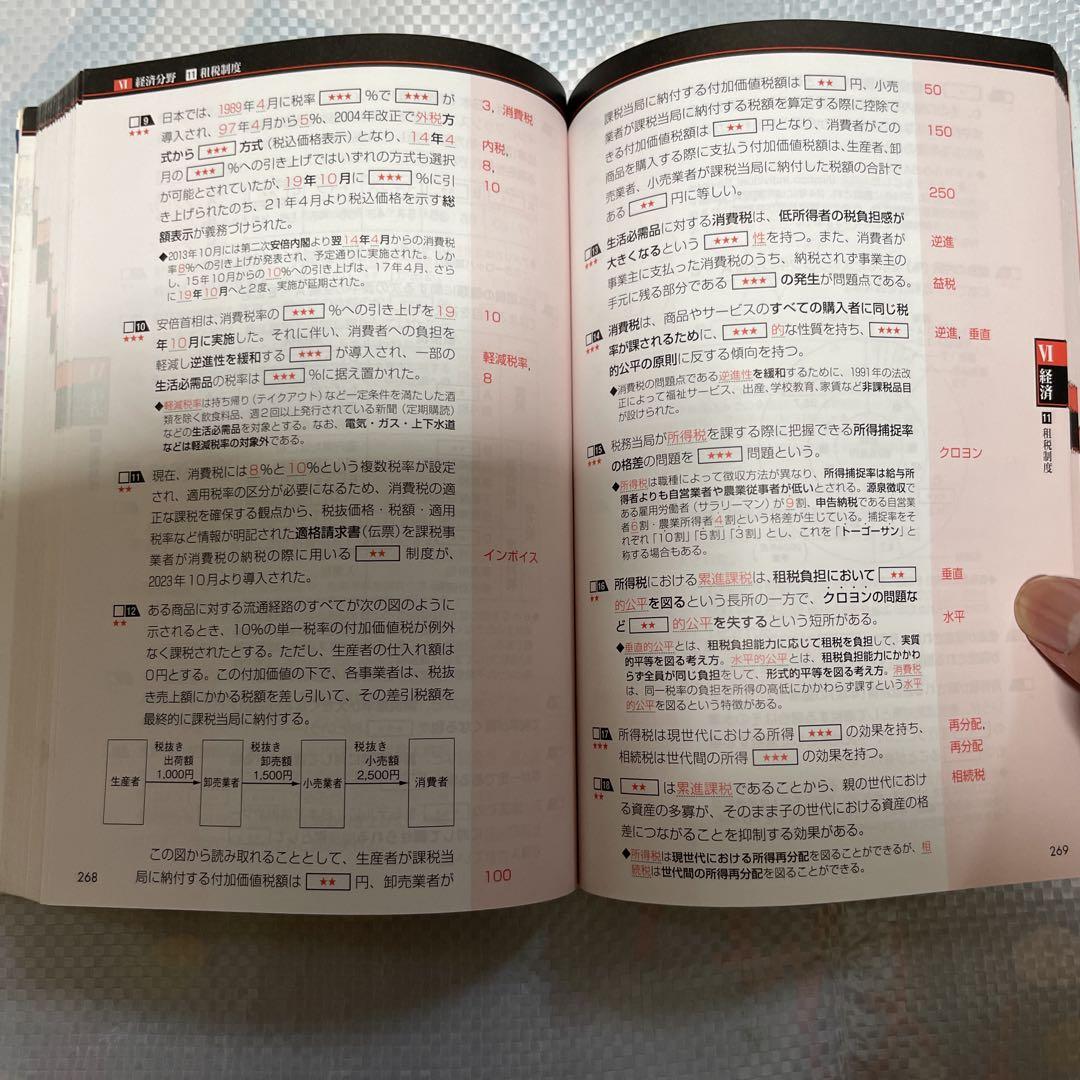 VI 経済分野 11 租税制度
9 日本では、1989年4月に税率 ★★★ %で ★★★ が
★★★ 導入され、97年4月から5%、2004年改正で外税方
式から ★★★ 方式（税込価格表示）となり、14年4
月の ★★★ %への引き上げではいずれの方式も選択
が可能とされていたが、19年10月に ★★★ %に引
き上げられたのち、21年4月より税込価格を示す総
額表示が義務づけられた。
3, 消費税
内税,
8,
10
◆2013年10月には第二次安倍内閣より翌14年4月からの消費税
率8%への引き上げが発表され、予定通りに実施された。しか
し、15年10月からの10%への引き上げは、17年4月、さら
に19年10月へと2度、実施が延期された。
10 安倍首相は、消費税率の ★★★ %への引き上げを19
★★★ 年10月に実施した。それに伴い、消費者への負担を
軽減し逆進性を緩和する ★★★ が導入され、一部の
生活必需品の税率は ★★★ %に据え置かれた。
10
軽減税率,
8
◆軽減税率は持ち帰り（テイクアウト）など一定条件を満たした酒
類を除く飲食料品、週2回以上発行されている新聞（定期購読）
などの生活必需品を対象とする。なお、電気・ガス・上下水道
などは軽減税率の対象外である。
11 現在、消費税には8%と10%という複数税率が設定
★★ され、適用税率の区分が必要になるため、消費税の適
正な課税を確保する観点から、税抜価格・税額・適用
税率など情報が明記された適格請求書（伝票）を課税事
業者が消費税の納税の際に用いる ★★ 制度が、
2023年10月より導入された。
インボイス
12 ある商品に対する流通経路のすべてが次の図のように
★★ 示されるとき、10%の単一税率の付加価値税が例外
なく課税されたとする。ただし、生産者の仕入れ額は
0円とする。この付加価値の下で、各事業者は、税抜
き売上額にかかる税額を差し引いて、その差引税額を
最終的に課税当局に納付する。
生産者
税抜き
出荷額
1,000円
卸売業者
税抜き
卸売額
1,500円
小売業者
税抜き
小売額
2,500円
消費者
この図から読み取れることとして、生産者が課税当
局に納付する付加価値税額は ★★ 円、卸売業者が
100
268
課税当局に納付する付加価値税額は ★★ 円、小売
業者が課税当局に納付する税額を算定する際に控除で
きる付加価値税額は ★★ 円となり、消費者がこの
商品を購入する際に支払う付加価値税額は、生産者、卸
売業者、小売業者が課税当局に納付した税額の合計で
ある ★★ 円に等しい。
50
150
250
13 生活必需品に対する消費税は、低所得者の税負担感が
★★★ 大きくなるという ★★★ 性を持つ。また、消費者が
事業主に支払った消費税のうち、納税されず事業主の
手元に残る部分である ★★★ の発生が問題点である。
逆進
益税
14 消費税は、商品やサービスのすべての購入者に同じ税
★★★ 率が課されるために、 ★★★ 的な性質を持ち、 ★★★
的公平の原則に反する傾向を持つ。
逆進, 垂直
◆消費税の問題点である逆進性を緩和するために、1991年の法改
正によって福祉サービス、出産、学校教育、家賃など非課税品目
が設けられた。
15 税務当局が所得税を課する際に把握できる所得捕捉率
★★★ の格差の問題を ★★★ 問題という。
クロヨン
◆所得税は職種によって徴収方法が異なり、所得捕捉率は給与所
得者よりも自営業者や農業従事者が低いとされる。源泉徴収で
ある雇用労働者（サラリーマン）が9割、申告納税である自営業
者6割・農業所得者4割という格差が生じている。捕捉率をそ
れぞれ「10割」「5割」「3割」とし、これを「トーゴーサン」と
称する場合もある。
16 所得税における累進課税は、租税負担において ★★
★★ 的公平を図るという長所の一方で、クロヨンの問題な
ど ★★ 的公平を失するという短所がある。
垂直
水平
◆垂直的公平とは、租税負担能力に応じて租税を負担して、実質
的平等を図る考え方。水平的公平とは、租税負担能力にかかわ
らず全員が同じ負担をして、形式的平等を図る考え方。消費税
は、同一税率の負担を所得の高低にかかわらず課すという水平
的公平を図るという特徴がある。
17 所得税は現世代における所得 ★★★ の効果を持ち、
★★★ 相続税は世代間の所得 ★★★ の効果を持つ。
再分配,
再分配
18 ★★ は累進課税であることから、親の世代におけ
★★ る資産の多寡が、そのまま子の世代における資産の格
差につながることを抑制する効果がある。
相続税
◆所得税は現世代における所得再分配を図ることができるが、相
続税は世代間の所得再分配を図ることができる。
269
VI 経済 11 租税制度